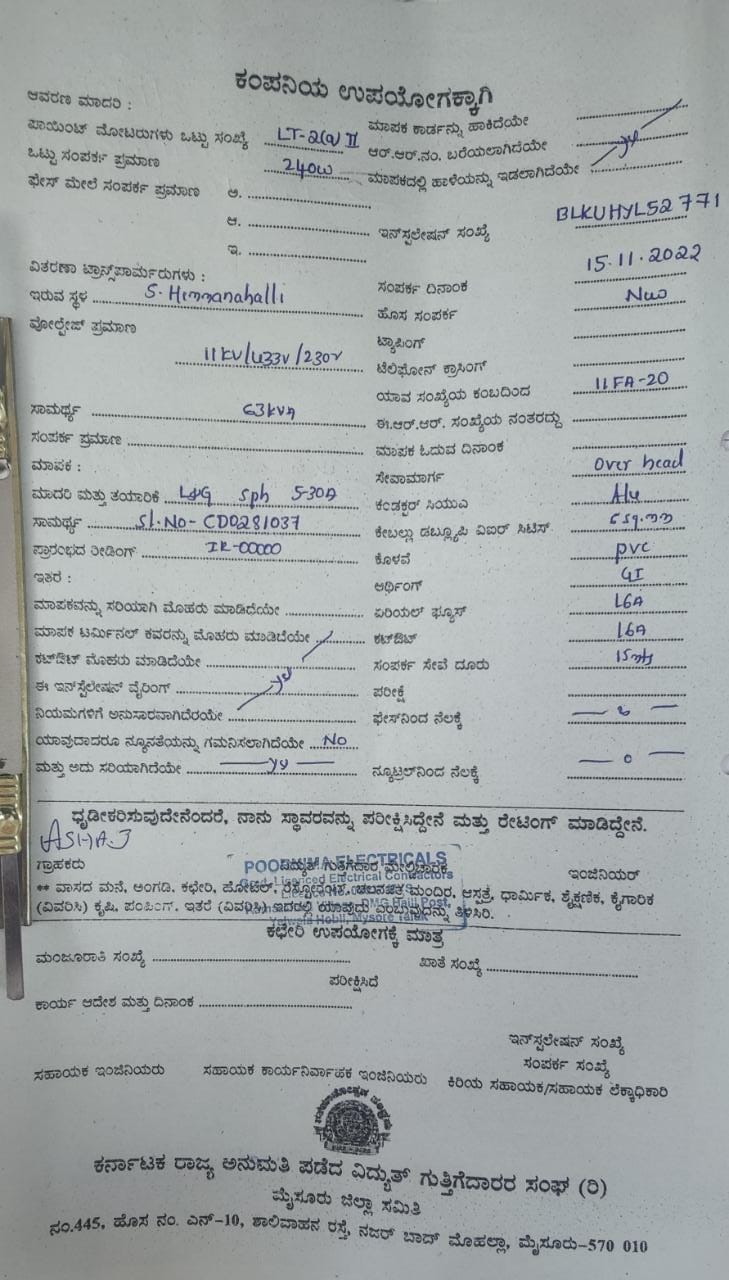 ಕಂಪನಿಯ ಉಪಯೋಗಕ್ಕಾಗಿ
ಆವರಣ ಮಾದರಿ :
ಪಾಯಿಂಟ್ ಮೋಟರುಗಳು ಒಟ್ಟು ಸಂಖ್ಯೆ LT-2(a) II ಮಾಪಕ ಕಾರ್ಡನ್ನು ಹಾಕಿದೆಯೇ
ಒಟ್ಟು ಸಂಪರ್ಕ ಪ್ರಮಾಣ 240W ಆರ್.ಆರ್.ನಂ. ಬರೆಯಲಾಗಿದೆಯೇ
ಫೇಸ್ ಮೇಲೆ ಸಂಪರ್ಕ ಪ್ರಮಾಣ ಅ. ಮಾಪಕದಲ್ಲಿ ಹಾಳೆಯನ್ನು ಇಡಲಾಗಿದೆಯೇ
ಆ. ಇನ್‌ಸ್ಟಲೇಷನ್ ಸಂಖ್ಯೆ BLKUHYL52771
ಇ.
ವಿತರಣಾ ಟ್ರಾನ್ಸ್‌ಪಾರ್ಮರುಗಳು : ಸಂಪರ್ಕ ದಿನಾಂಕ 15.11.2022
ಇರುವ ಸ್ಥಳ S. Hemmanahalli ಹೊಸ ಸಂಪರ್ಕ New
ವೋಲ್ಟೇಜ್ ಪ್ರಮಾಣ ಟ್ಯಾಪಿಂಗ್
11KV/433V/230V ಟೆಲಿಫೋನ್ ಕ್ರಾಸಿಂಗ್
ಯಾವ ಸಂಖ್ಯೆಯ ಕಂಬದಿಂದ 11FA-20
ಸಾಮರ್ಥ್ಯ 63kVA ಈ.ಆರ್.ಆರ್. ಸಂಖ್ಯೆಯ ನಂತರದ್ದು
ಸಂಪರ್ಕ ಪ್ರಮಾಣ ಮಾಪಕ ಓದುವ ದಿನಾಂಕ
ಮಾಪಕ : ಸೇವಾಮಾರ್ಗ Over head
ಮಾದರಿ ಮತ್ತು ತಯಾರಿಕೆ L&G Sph 5-30A ಕಂಡಕ್ಟರ್ ಸಿಯುಎ Alu
ಸಾಮರ್ಥ್ಯ Sl.No- CD0281037 ಕೇಬಲ್ಲು ಡಬ್ಲ್ಯೂಪಿ ವಿಐರ್ ಸಿಟಿಸ್
ಪ್ರಾರಂಭದ ರೀಡಿಂಗ್ IR-00000 ಕೊಳವೆ pvc
ಇತರೆ : ಅರ್ಥಿಂಗ್ GI
ಮಾಪಕವನ್ನು ಸರಿಯಾಗಿ ಮೊಹರು ಮಾಡಿದೆಯೇ ಏರಿಯಲ್ ಫ್ಯೂಸ್ 16A
ಮಾಪಕ ಟರ್ಮಿನಲ್ ಕವರನ್ನು ಮೊಹರು ಮಾಡಿದೆಯೇ ಕಟ್ಔಟ್ 16A
ಕಟ್ಔಟ್ ಮೊಹರು ಮಾಡಿದೆಯೇ ಸಂಪರ್ಕ ಸೇವೆ ದೂರು 15mts
ಈ ಇನ್‌ಸ್ಟಲೇಷನ್ ವೈರಿಂಗ್ ಪರೀಕ್ಷೆ
ನಿಯಮಗಳಿಗೆ ಅನುಸಾರವಾಗಿದೆರಯೇ ಫೇಸ್‌ನಿಂದ ನೆಲಕ್ಕೆ
ಯಾವುದಾದರೂ ನ್ಯೂನತೆಯನ್ನು ಗಮನಿಸಲಾಗಿದೆಯೇ No
ಮತ್ತು ಅದು ಸರಿಯಾಗಿದೆಯೇ ನ್ಯೂಟ್ರಲ್‌ನಿಂದ ನೆಲಕ್ಕೆ — 0 —
ಧೃಡೀಕರಿಸುವುದೇನೆಂದರೆ, ನಾನು ಸ್ಥಾವರವನ್ನು ಪರೀಕ್ಷಿಸಿದ್ದೇನೆ ಮತ್ತು ರೇಟಿಂಗ್ ಮಾಡಿದ್ದೇನೆ.
ASHA.J
ಗ್ರಾಹಕರು ವಿದ್ಯುತ್ ಗುತ್ತಿಗೆದಾರ ಮೇಲ್ವಿಚಾರಕ ಇಂಜಿನಿಯರ್
ELECTRICALS
Licenced Electrical Contractors
** ವಾಸದ ಮನೆ, ಅಂಗಡಿ. ಕಛೇರಿ, ಹೋಟೆಲ್, ರೆಸ್ಟೋರೆಂಟ್, ಚಲನಚಿತ್ರ ಮಂದಿರ, ಆಸ್ಪತ್ರೆ, ಧಾರ್ಮಿಕ, ಶೈಕ್ಷಣಿಕ, ಕೈಗಾರಿಕ
(ವಿವರಿಸಿ) ಕೃಷಿ, ಪಂಪಿಂಗ್. ಇತರೆ (ವಿವರಿಸಿ) ಇದರಲ್ಲಿ ಯಾವುದು ಎಂಬುವುದನ್ನು ತಿಳಿಸಿರಿ.
Hobli, Mysore Taluk
ಕಛೇರಿ ಉಪಯೋಗಕ್ಕೆ ಮಾತ್ರ
ಮಂಜೂರಾತಿ ಸಂಖ್ಯೆ ಖಾತೆ ಸಂಖ್ಯೆ
ಪರೀಕ್ಷಿಸಿದೆ
ಕಾರ್ಯ ಆದೇಶ ಮತ್ತು ದಿನಾಂಕ
ಇನ್‌ಸ್ಟಲೇಷನ್ ಸಂಖ್ಯೆ
ಸಂಪರ್ಕ ಸಂಖ್ಯೆ
ಸಹಾಯಕ ಇಂಜಿನಿಯರು ಸಹಾಯಕ ಕಾರ್ಯನಿರ್ವಾಹಕ ಇಂಜಿನಿಯರು ಕಿರಿಯ ಸಹಾಯಕ/ಸಹಾಯಕ ಲೆಕ್ಕಾಧಿಕಾರಿ
ಕರ್ನಾಟಕ ರಾಜ್ಯ ಅನುಮತಿ ಪಡೆದ ವಿದ್ಯುತ್ ಗುತ್ತಿಗೆದಾರರ ಸಂಘ (ರಿ)
ಮೈಸೂರು ಜಿಲ್ಲಾ ಸಮಿತಿ
ನಂ.445, ಹೊಸ ನಂ. ಎನ್-10, ಶಾಲಿವಾಹನ ರಸ್ತೆ, ನಜರ್ ಬಾದ್ ಮೊಹಲ್ಲಾ, ಮೈಸೂರು-570 010